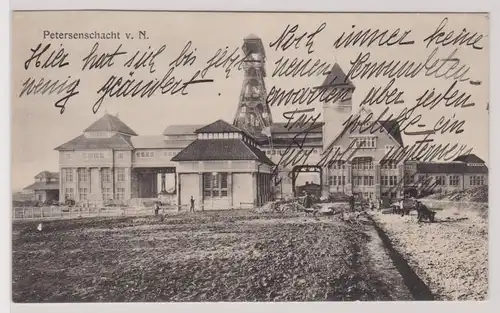 Petersenschacht v. N.
Hier hat sich bis jetzt
wenig geändert
Noch immer keine
neuen Verwundeten
erwarten aber jeden
Tag welche - ein
treffen